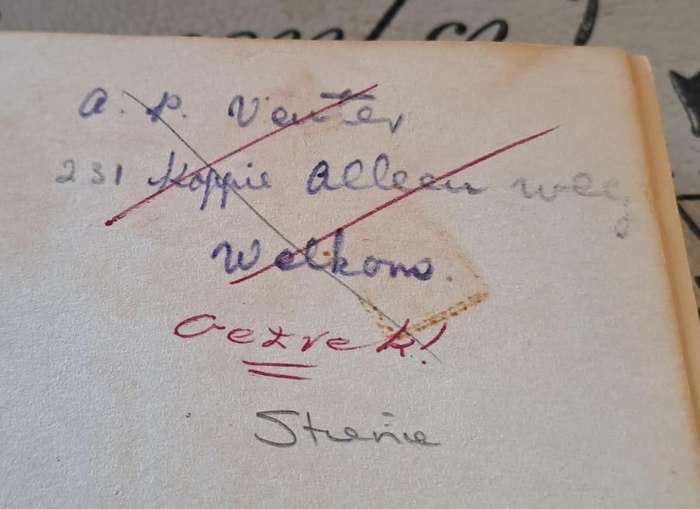 A. P. Venter
231 Koppie Alleen weg
Welkom.
Getrek!